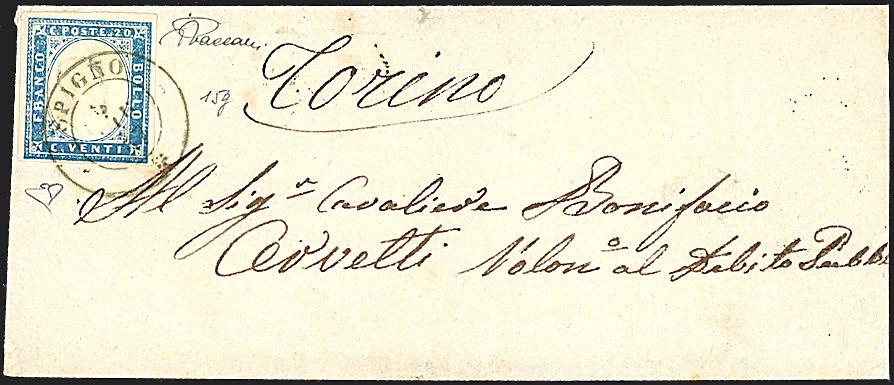 C. POSTE 20
FRANCO
BOLLO
C. VENTI
SPIGNO
15g
Torino
Al Sig.r Cavaliere Bonifacio
Cervetti Volon.o al Debito Pubb